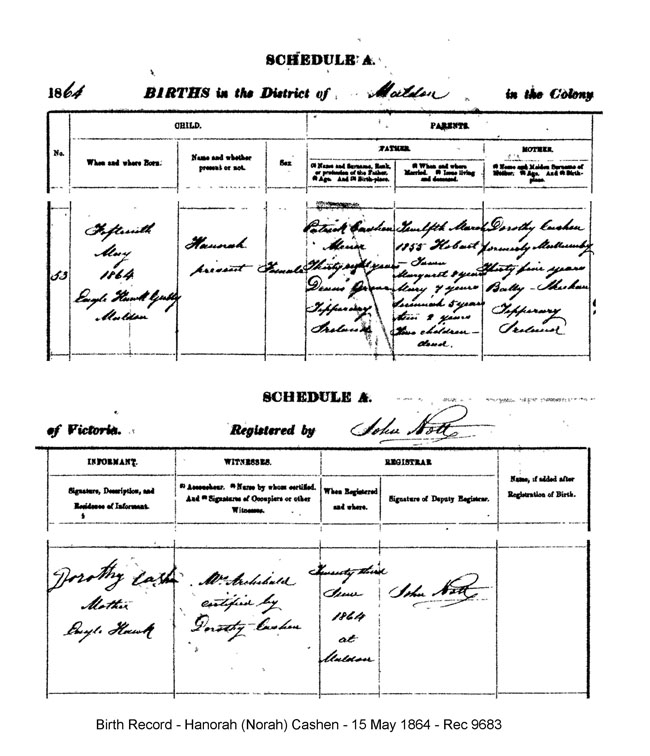 SCHEDULE A.
1864 BIRTHS in the District of Maldon in the Colony
CHILD. PARENTS.
FATHER. MOTHER.
No. When and where Born. Name and whether present or not. Sex (1) Name and Surname, Rank, or profession of the Father. (2) Age. And (3) Birth-place. (1) When and where Married. (2) Issue living and deceased. (1) Name and Maiden Surname of Mother. (2) Age. And (3) Birth-place.
53
Fifteenth
May
1864
Eagle Hawk Gully
Maldon
Hanorah
present
Female
Patrick Cashen
Miner
Thirty eight years
Tipperary
Ireland
Twelfth March
1855 Hobart
Town
Margaret 8 years
Mary 7 years
Jeremiah 5 years
Ann 2 years
Two children
dead.
Dorothy Cashen
formerly
Thirty five years
Tipperary
Ireland
SCHEDULE A.
of Victoria. Registered by John Nott
INFORMANT. WITNESSES. REGISTRAR
Signature, Description, and Residence of Informant. (1) Accoucheur. (2) Name by whom certified. And (3) Signatures of Occupiers or other Witnesses. When Registered and where. Signature of Deputy Registrar. Name, if added after Registration of Birth.
Dorothy Cashen
Mother
Eagle Hawk
Mrs Archibald
certified by
Dorothy Cashen
Twenty third
June
1864
at
Maldon
John Nott
Birth Record - Hanorah (Norah) Cashen - 15 May 1864 - Rec 9683